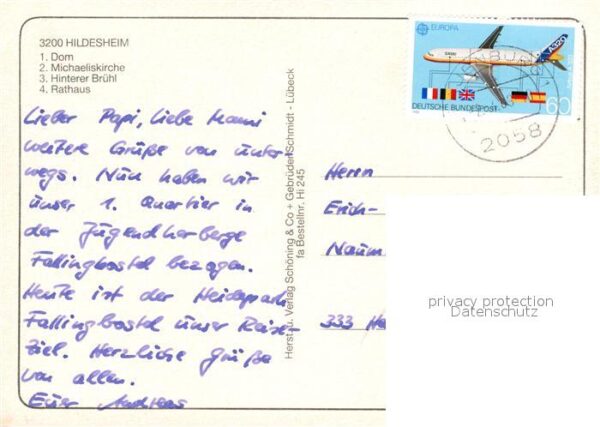 3200 HILDESHEIM
1. Dom
2. Michaeliskirche
3. Hinterer Brühl
4. Rathaus
Lieber Papi, liebe Mami
weitere Grüße von unter-
wegs. Nun haben wir
unser 1. Quartier in
der Jugendherberge
Fallingbostel bezogen.
Heute ist der Heidepark
Fallingbostel unser Reise-
ziel. Herzliche Grüße
von allen.
Euer Andreas
Herst. u. Verlag Schöning & Co + Gebrüder Schmidt - Lübeck
fa Bestellnr. Hi 245
EUROPA
A320
DEUTSCHE BUNDESPOST
60
2058
Herrn
Erich-
Naum
333 He
privacy protection
Datenschutz